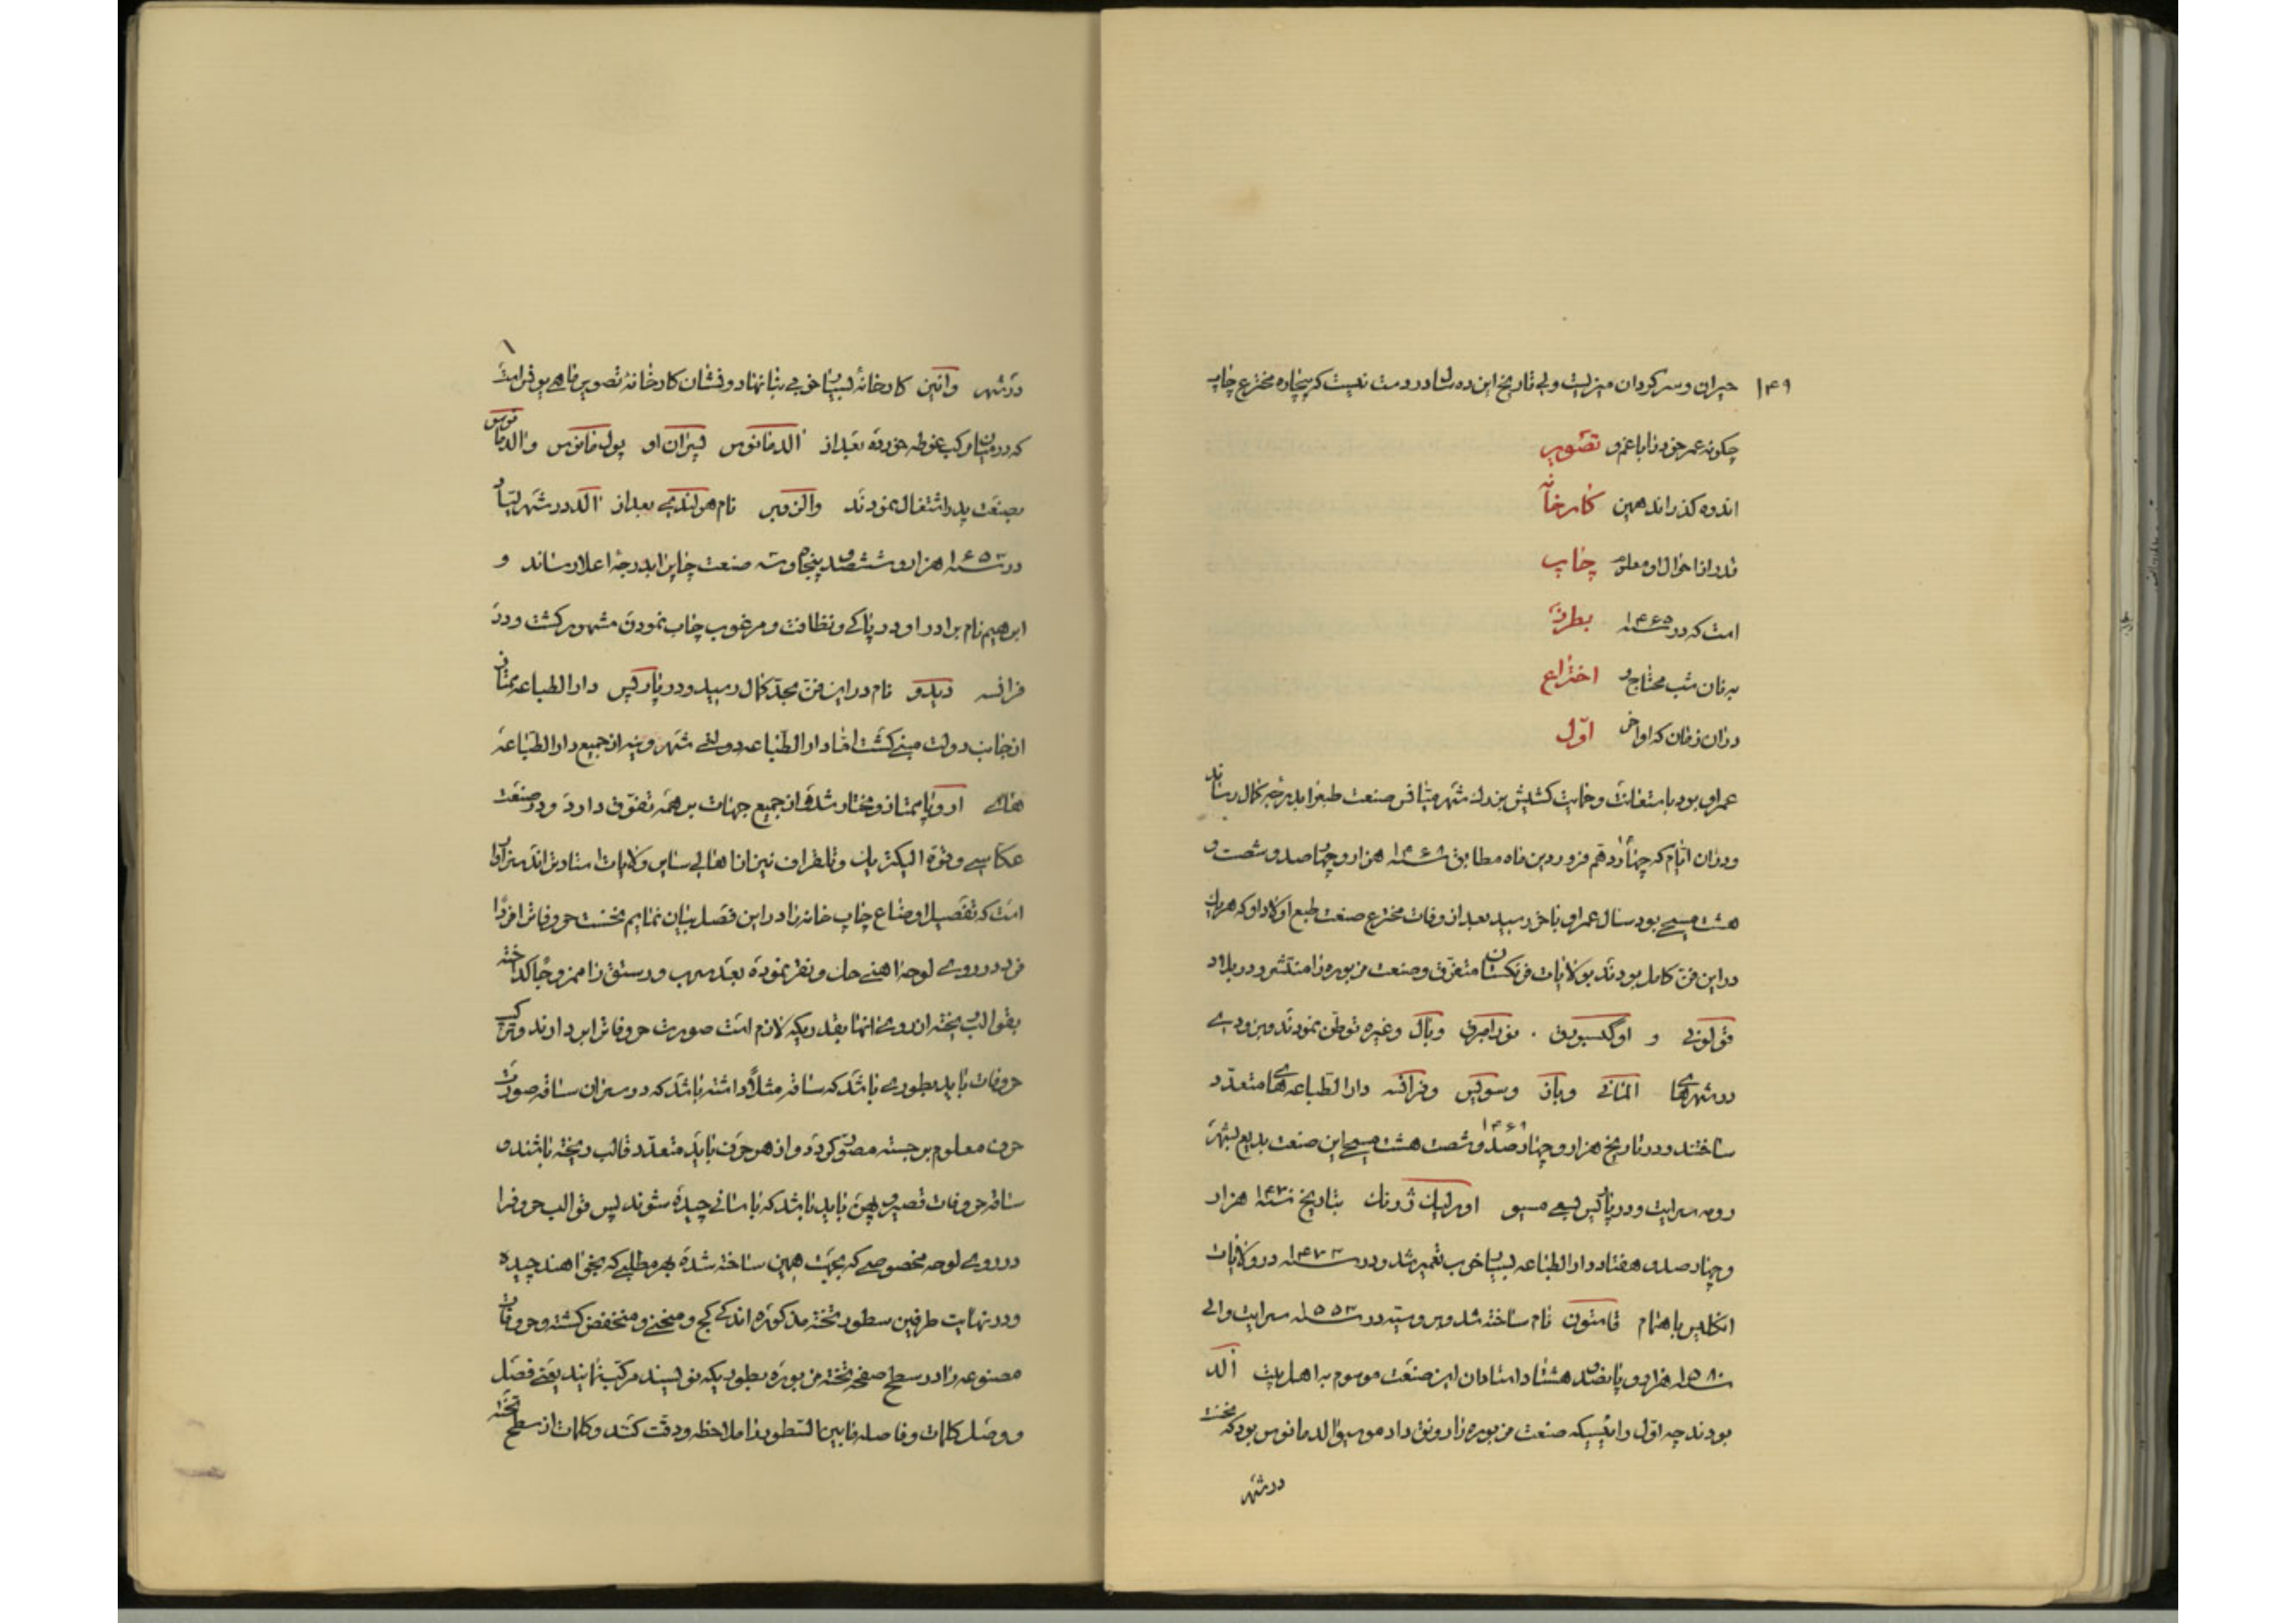 ۱۴۹ حیران و سرکردان میزیست ولی تاریخ این ده سال درست نیست که بیچاره مخترع چاپ
چکونه عمر خود را با غم و تصویر
اندوه کذراند همین کارخانه
قدر از احوال او معلوم چاپ
است که در ۱۴۶۵ سنه بطرز
به نان شب محتاج و اختراع
در آن زمان که اواخر اول
عمر او بود باستعانت و حمایت کشیش بزرك شهر میانس صنعت طبع را بدرجه کمال رساند
و در آن ایام که چهاردهم فروردین ماه مطابق سنه ۱۴۶۸ هزار و چهارصد و شصت و
هشت مسیحی بود سال عمر او باخر رسید بعد از وفات مخترع صنعت طبع اولاد او که هریك
در این فن کامل بودند بولایات فرنکستان متفرق و صنعت مزبوره را منتشر و در بلاد
قولونی و اوکسبورق . نورامبرق و بال و غیره توطن نمودند و بزودی
در شهرهای المانی و بان و سویس و فرانسه دارالطباعه های متعدد
ساختند و در تاریخ هزار و چهارصد و شصت هشت ۱۴۶۹ مسیحی این صنعت بدیع بشهر
رومه سرایت و در پاریس بسعی مسیو اوبریك ژونك بتاریخ سنه ۱۴۷۰ هزار
و چهارصد و هفتاد دارالطباعه بسیار خوب تعمیر شد و در سنه ۱۴۷۳ در ولایات
انکلیس باهتمام قاستون نام ساخته شد و بروسیه در سنه ۱۵۵۳ سرایت و الی
سنه ۱۵۸۰ هزار و پانصد و هشتاد استادان این صنعت موسوم به اهل بیت الد
بودند چه اول رئیسیکه صنعت مزبوره را رونق داد موسیو الد مانوس بود که نخست
در شهر
در شهر وانین کارخانه بسیار خوبی بنا نهاد و نشان کارخانه تصویر ماهی یونس است
که در میان مرکب غوطه خورده بعد از الد مانوس پسران او پول مانوس و الد مانوس
بصنعت پدر اشتغال نمودند و الزویر نام هولندی بعد از الد در شهر لیبار
در سنه ۱۶۵۳ هزار و ششصد و پنجاه و سه صنعت چاپ را بدرجه اعلا رساند و
ابرهیم نام برادر او در پاکی و نظافت و مرغوب چاپ نمودن مشهور کشت و در
فرانسه دیدو نام در این فن بحد کمال رسید و در پاریس دارالطباعه ممتازی
از جانب دولت مبنی کشت اما دارالطباعه دولتی شهر وینه از جمیع دارالطباعه
های اروپا ممتاز و مختار شده و از جمیع جهات بر همه تفوق دارد و در صنعت
عکاسی و قوه الیکتریك و تلغراف نیز از اهالی سایر ولایات استادترند سزاوار
است که تفصیل اوضاع چاپ خانه را در این فصل بیان نمائیم نخست حروفات را فردا
فرد در روی لوحه اهنی حك و نقر نموده بعد سرب و رستق را ممزوجا کداخته
بقوالب ریخته از روی انها بقدریکه لازم است صورت حروفات را بردارند و ترکیب
حروفات باید بطوری باشد که ساقه مثلا داشته باشد که در سر آن ساقه صورت
حرف معلوم برجسته مصور کردد و از هر حرف باید متعدد قالب ریخته باشند و
ساقه حروفات قصیر و پهن باید باشد که باسانی چیده شوند پس قوالب حروف را
در روی لوحه مخصوصی که بجهت همین ساخته شده بهر مطلبی که بخواهند چیده
و در نهایت طرفین سطور تخته مذکوره اندکی کج و منحنی و منخفض کشته و حروفات
مصنوعه را در سطح صفحه تخته مزبوره بطوریکه نویسند مرکب نمایند یعنی فصل
و وصل کلمات و فاصله مابین السطور را ملاحظه و دقت کنند و کلمات از سطح تخته